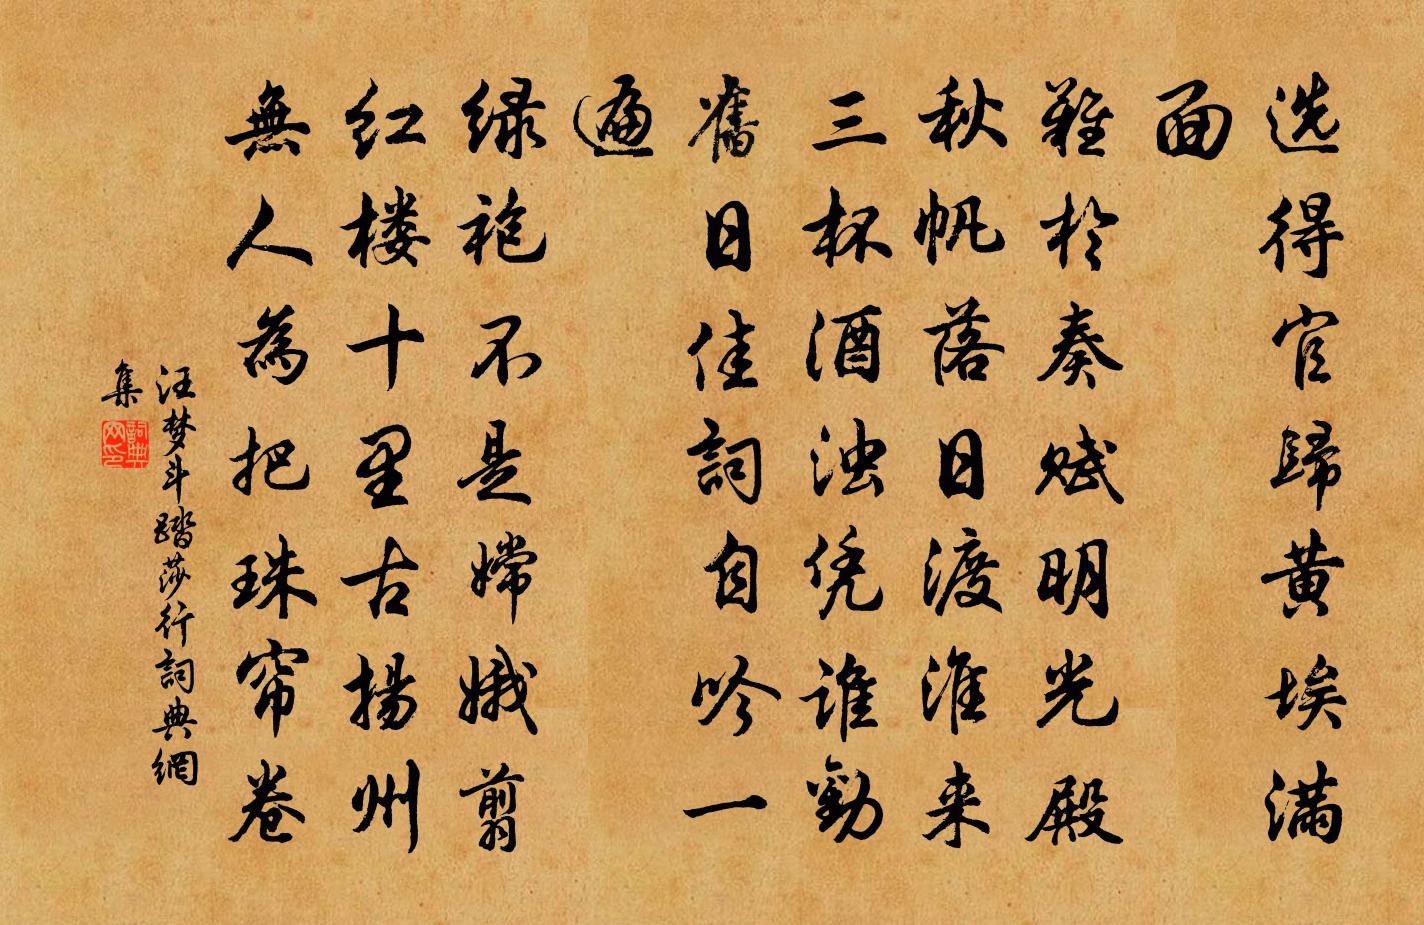 选得官歸黄埃满
面
難於奏赋明光殿
秋帆落日渡淮来
三杯酒浊凭谁勸
舊日佳詞自吟一
遍
绿袍不是嫦娥剪
红楼十里古揚州
無人為把珠帘卷
汪梦斗踏莎行詞典網
集
詞典
网印